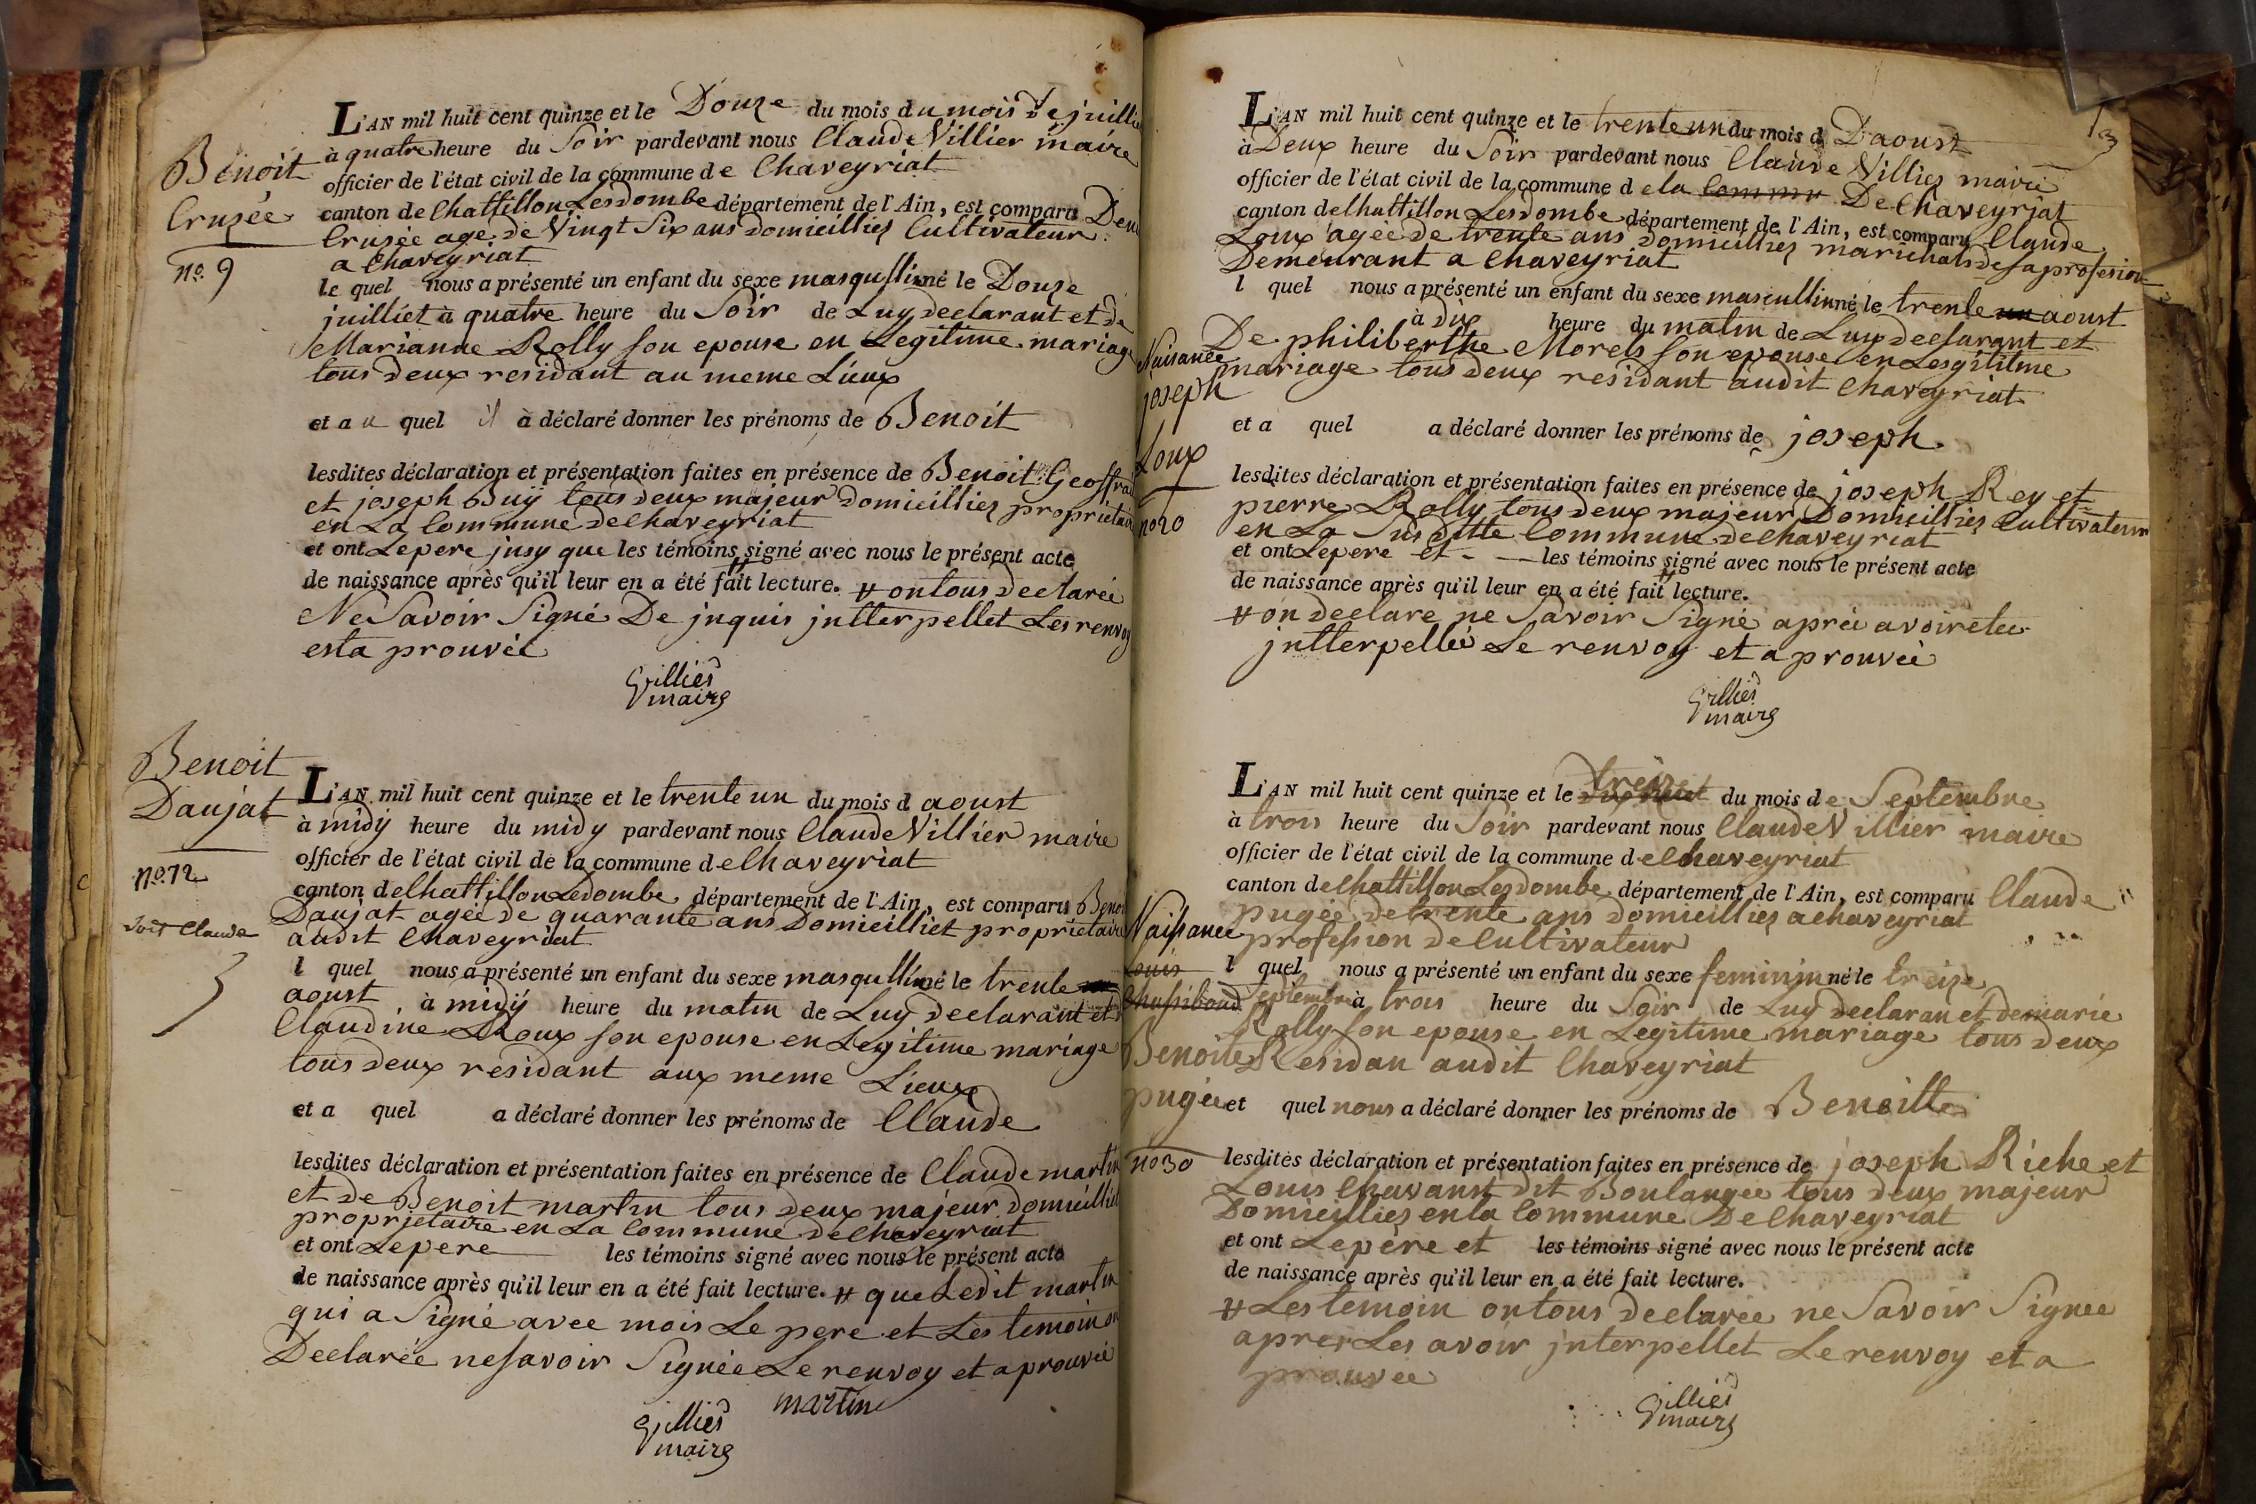 Benoit
Crusée
no. 9
L'AN mil huit cent quinze et le Douze du mois du mois de juillie
à quatre heure du Soir pardevant nous Claude Villier maire
officier de l'état civil de la commune de Chaveyriat
canton de Chattillon Lesdombe département de l'Ain, est comparu
Crusée age de Vingt Six ans domicilliez Cultivateur
a Chaveyriat
le quel nous a présenté un enfant du sexe masqullin né le Douze
juilliet à quatre heure du Soir de Luy declarant et de
Marianne Rolly son epouse en Legitime mariage
tous deux residant au meme Lieux
et a u quel il à déclaré donner les prénoms de Benoit
lesdites déclaration et présentation faites en présence de Benoit
et joseph Buy tous deux majeur domicilliez proprietaire
en La Commune de Chaveyriat
et ont Le pere jnsy que les témoins signé avec nous le présent acte
de naissance après qu'il leur en a été fait lecture. # on tous declarée
Ne Savoir Signé De jnquis jntterpellet Les renvoy
esta prouvée
Villier
maire
Benoit
Daujat
no. 12
Soit Claude
L'AN mil huit cent quinze et le trente un du mois d aoust
à midy heure du midy pardevant nous Claude Villier maire
officier de l'état civil de la commune de Chaveyriat
canton de Chattillon Ledombe département de l'Ain, est comparu Benoi
Daujat agée de quarante ans Domicilliet proprietaire
audit Chaveyriat
l quel nous a présenté un enfant du sexe masqullin né le trente un
aoust à midy heure du matin de Luy declarant et
Claudine Roux son epouse en Legitime mariage
tous deux residant aux meme Lieux
et a quel a déclaré donner les prénoms de Claude
lesdites déclaration et présentation faites en présence de Claude martin
et de Benoit martin tous deux majeur domicilliet
proprjetaire en La Commune de Chaveyriat
et ont Le pere les témoins signé avec nous le présent acte
de naissance après qu'il leur en a été fait lecture. # que Ledit martin
qui a Signé avec mois Le pere et Les temoin on
Declarée ne savoir Signée Le renvoy et aprouvée
martin
Villier
maire
13
Naisance
joseph
Loux
no 20
L'AN mil huit cent quinze et le trente un du mois d Daoust
à Deux heure du Soir pardevant nous Claude Villier maire
officier de l'état civil de la commune d e la Commu De Chaveyriat
canton de Chattillon Lesdombe département de l'Ain, est comparu Claude
Loux agée de trente ans domicilliez marichals de sa profesion
Demeurant a Chaveyriat
l quel nous a présenté un enfant du sexe mascullin né le trente un aoust
à dix heure du matin de Luy declarant et
De philiberthe Morels son epouse en Lesgitime
mariage tous deux residant audit Chaveyriat
et a quel a déclaré donner les prénoms de joseph
lesdites déclaration et présentation faites en présence de joseph Rey et
pierre Rolly tous deux majeur Domicilliez Cultivateur
en La Susditte Commune de Chaveyriat
et ont Le pere et les témoins signé avec nous le présent acte
de naissance après qu'il leur en a été fait lecture.
# on declare ne Savoir Signé aprée avoir etee
jntterpellée Le renvoy et aprouvée
Villier
maire
Naissance
Louis
Benoite
pugée
no 30
L'AN mil huit cent quinze et le treize du mois de Septembre
à trois heure du Soir pardevant nous Claude Villier maire
officier de l'état civil de la commune de Chaveyriat
canton de Chattillon Lesdombe département de l'Ain, est comparu Claude
pugée de trente ans domicilliez a Chaveyriat
profession de Cultivateur
l quel nous a présenté un enfant du sexe feminin né le treize
Septembre à trois heure du Soir de Luy declaran et de marie
Rolly son epouse en Legitime mariage tous deux
Residan audit Chaveyriat
et quel nous a déclaré donner les prénoms de Benoitte
lesdites déclaration et présentation faites en présence de joseph Riche et
Louis Chavanst dit Boulangee tous deux majeur
Domicilliez en la Commune De Chaveyriat
et ont Le père et les témoins signé avec nous le présent acte
de naissance après qu'il leur en a été fait lecture.
# Les temoin on tous declarée ne Savoir Signée
aprez Les avoir jnterpellet Le renvoy et a
prouvee
Villier
maire